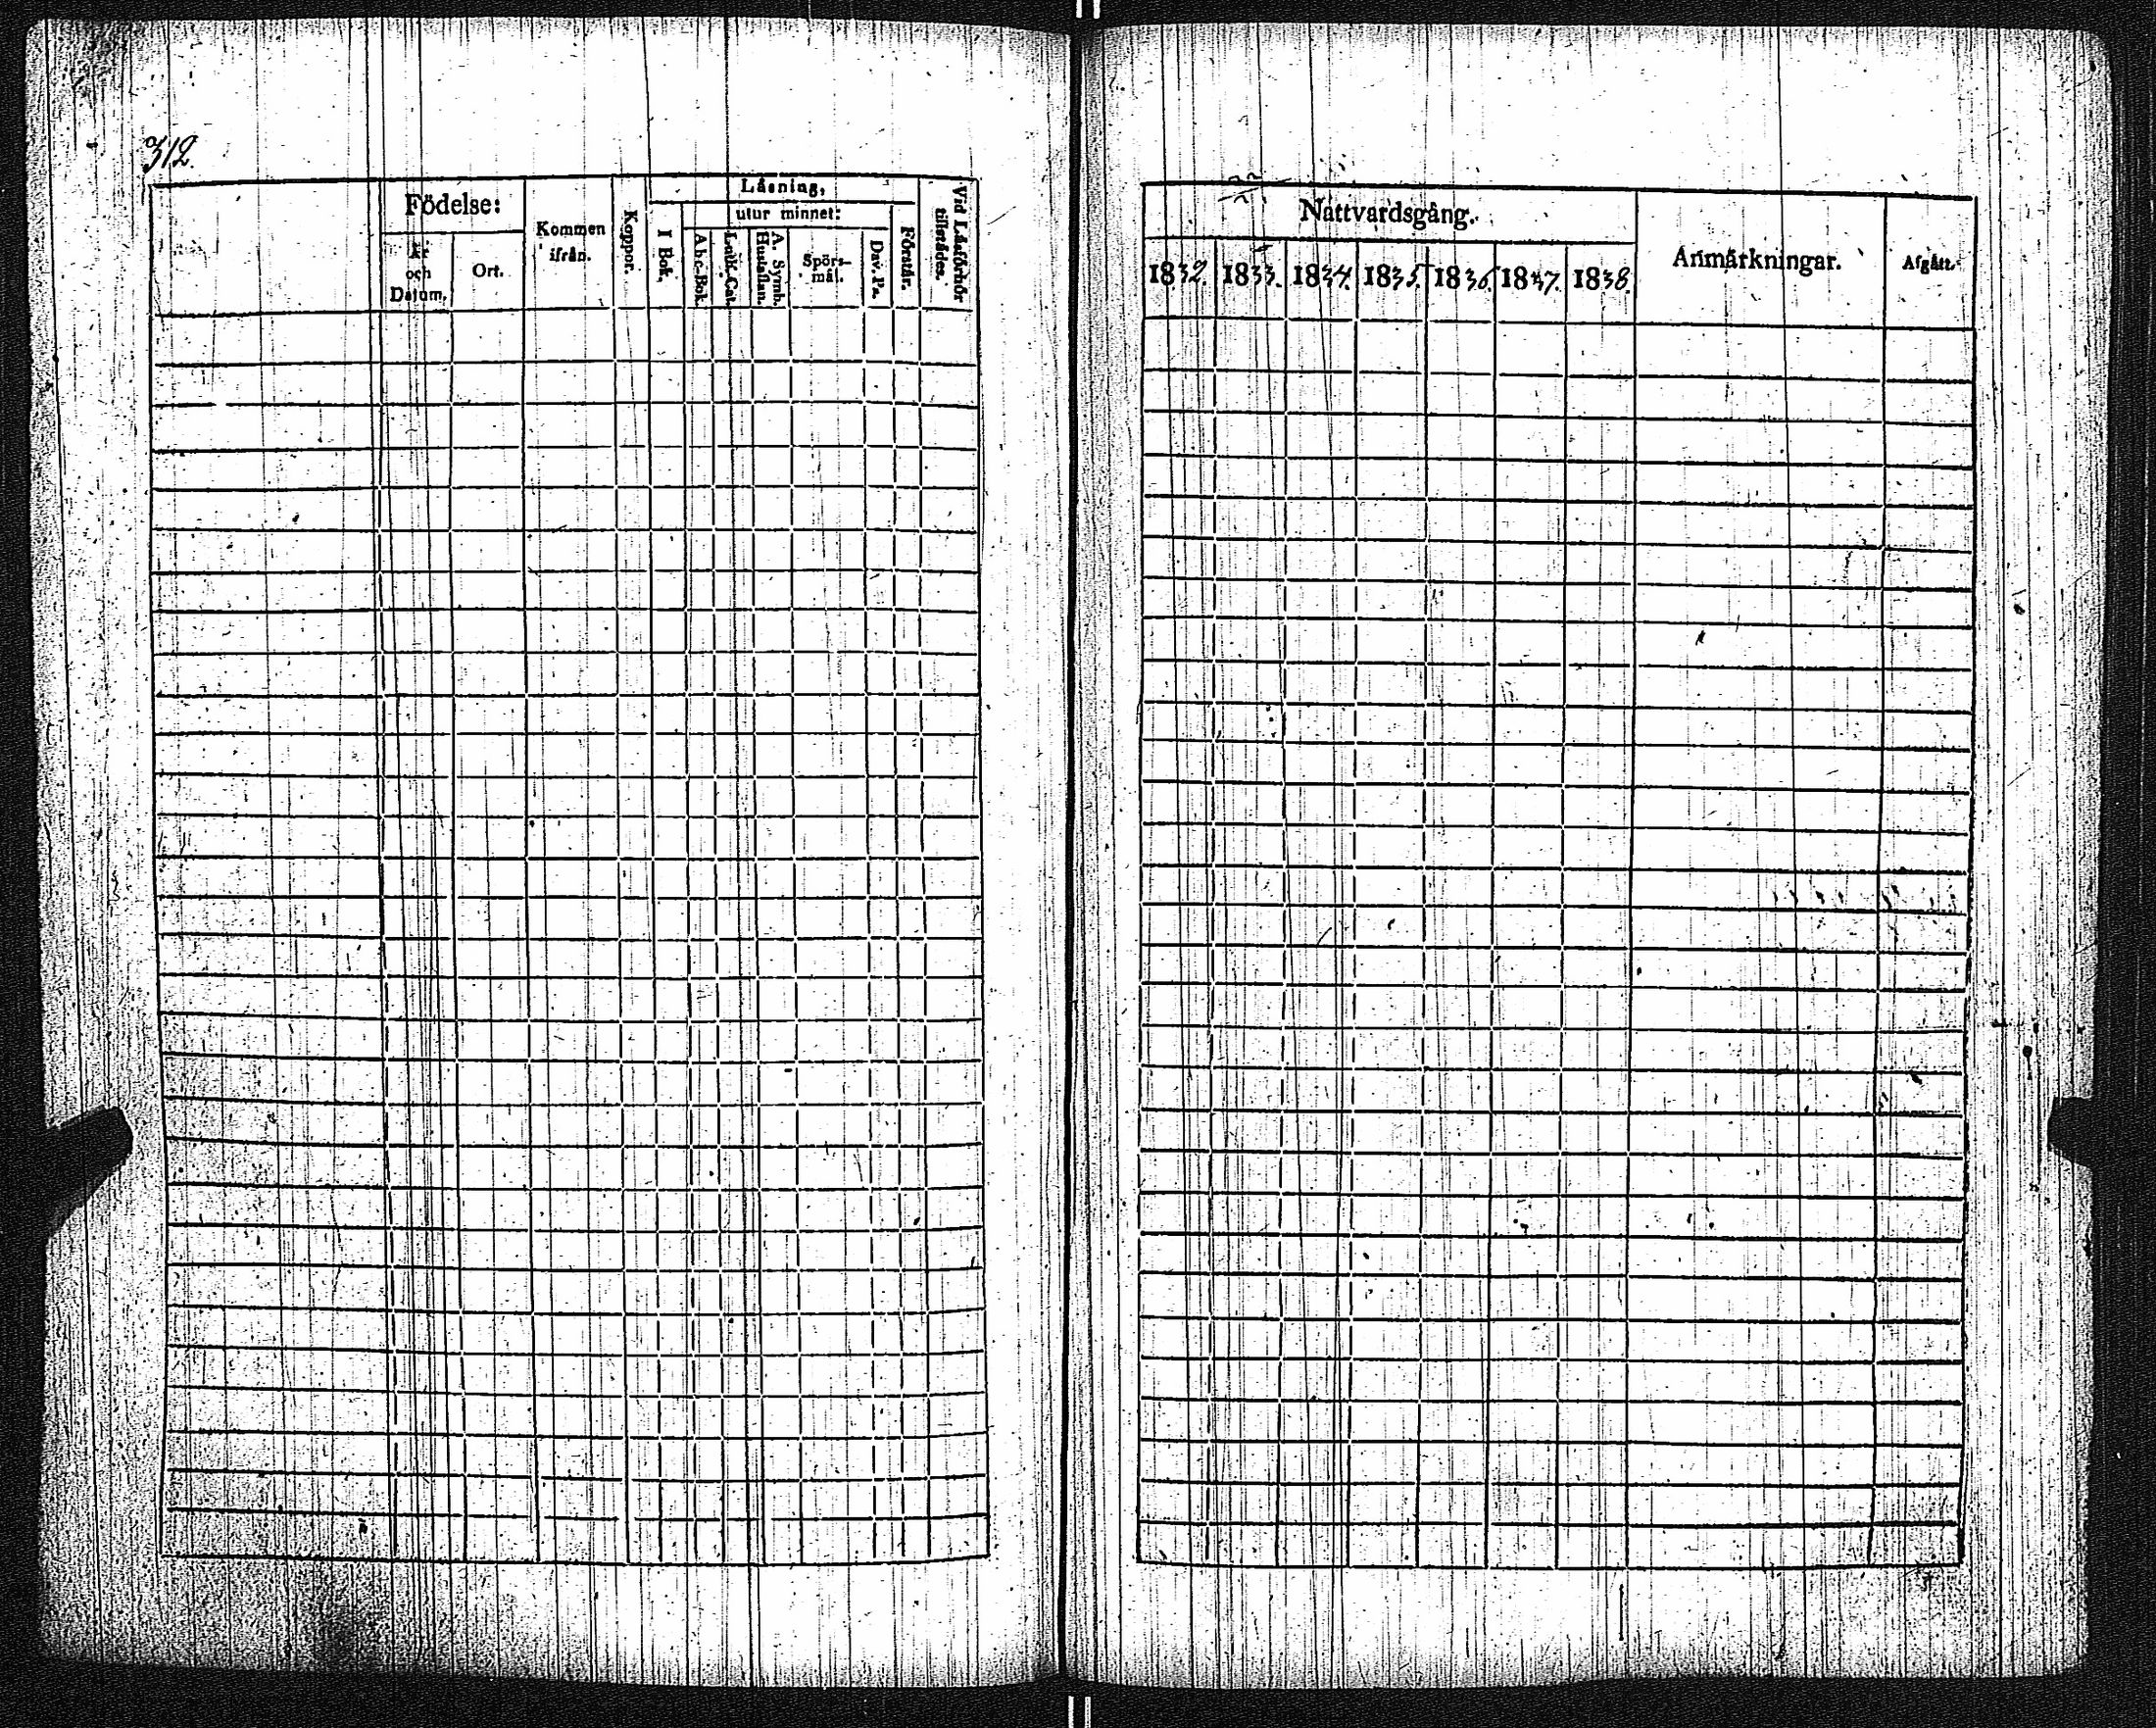 312.
Födelse:
år och Datum.
Ort.
Kommen ifrån.
Koppor.
Läsning,
I Bok.
utur minnet:
Abc-Bok.
Luth. Cat.
A. Symb. Hustaflan.
Spörs-mål.
Dav. Ps.
Förstår.
Vid Läsförhör tillstädes.
Nattvardsgång.
1832. 1833. 1834. 1835. 1836. 1837. 1838.
Anmärkningar.
Afgått.